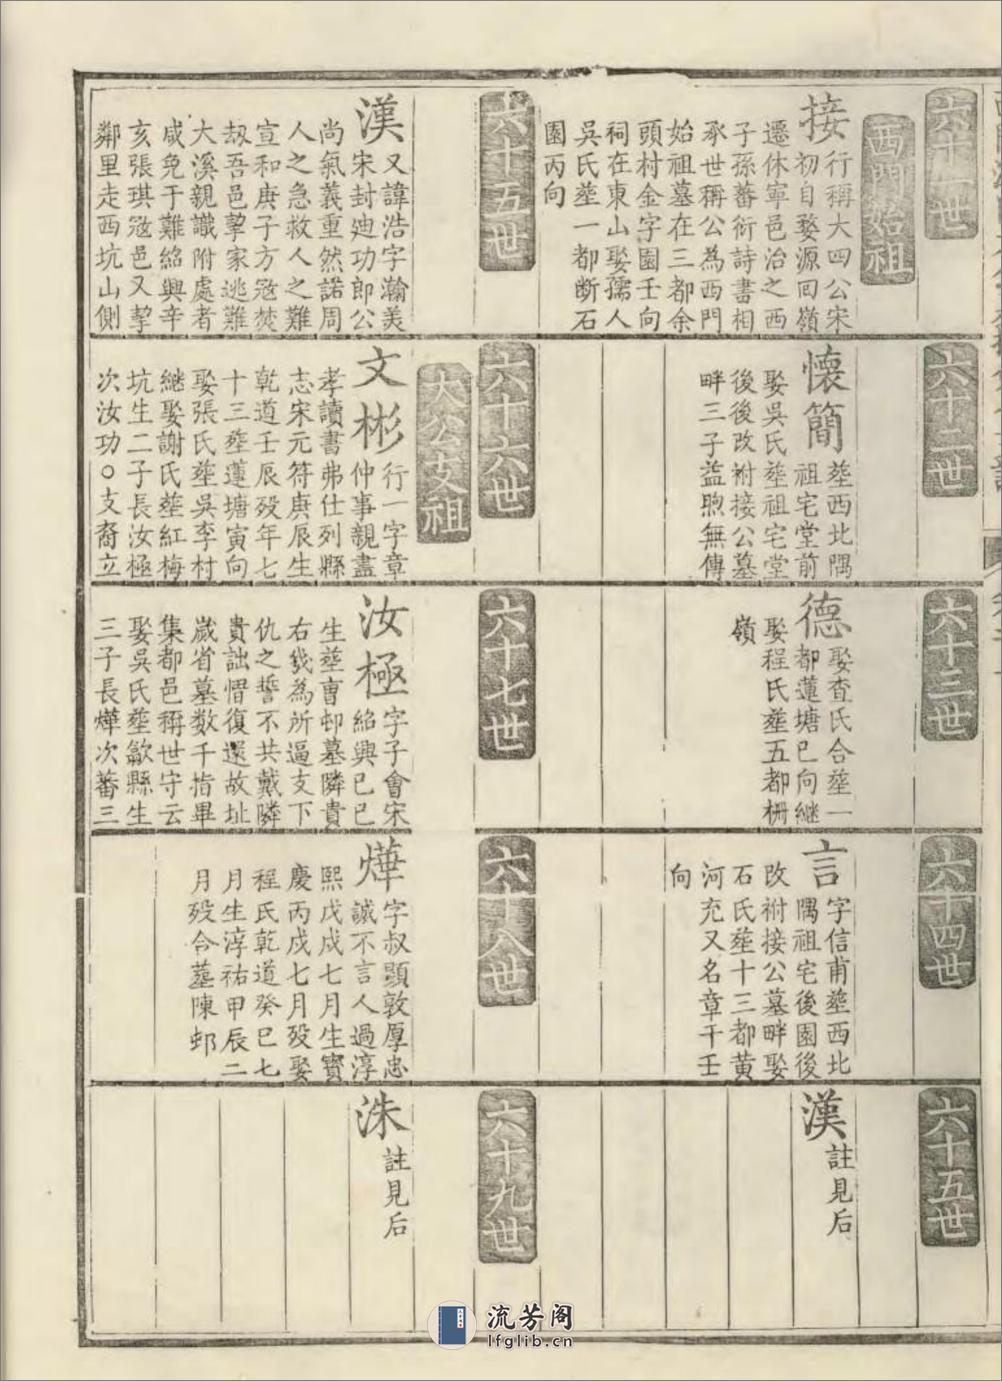 六十一世
西門始祖
接
行稱大四公宋
初自婺源回嶺
遷休寧邑治之西
子孫蕃衍詩書相
承世稱公為西門
始祖墓在三都余
頭村金字園壬向
祠在東山娶孺人
吳氏塟一都断石
園丙向
六十二世
懷簡
塟西北隅
祖宅堂前
娶吳氏塟祖宅堂
後後改祔接公墓
畔三子益煦無傳
六十三世
德
娶查氏合塟一
都蓮塘巳向継
娶程氏塟五都柵
嶺
六十四世
言
字信甫塟西北
隅祖宅後園後
改祔接公墓畔娶
石氏塟十三都黄
河充又名章干壬
向
六十五世
漢
註見后
六十五世
漢
又諱浩字瀚美
宋封廸功郎公
尚氣義重然諾周
人之急救人之難
宣和庚子方冦焚
刼吾邑挈家逃難
大溪親識附處者
咸免于難紹興辛
亥張琪冦邑又挈
鄰里走西坑山側
六十六世
大公支祖
文彬
行一字章
仲事親盡
孝讀書弗仕列縣
志宋元符庚辰生
乾道壬辰殁年七
十三塟蓮塘寅向
娶張氏塟吳李村
継娶謝氏塟紅梅
坑生二子長汝極
次汝功○支裔立
六十七世
汝極
字子會宋
紹興已巳
生塟曺邨墓隣貴
右㡬為所逼支下
仇之誓不共戴隣
貴詘愲復還故址
嵗省墓数千指畢
集都邑稱世守云
娶吳氏塟歙縣生
三子長燁次蕃三
六十八世
燁
字叔顯敦厚忠
誠不言人過淳
熙戊戌七月生寳
慶丙戌七月殁娶
程氏乾道癸巳七
月生淳祐甲辰二
月殁合墓陳邨
六十九世
洙
註見后
流芳阁
lfglib.cn